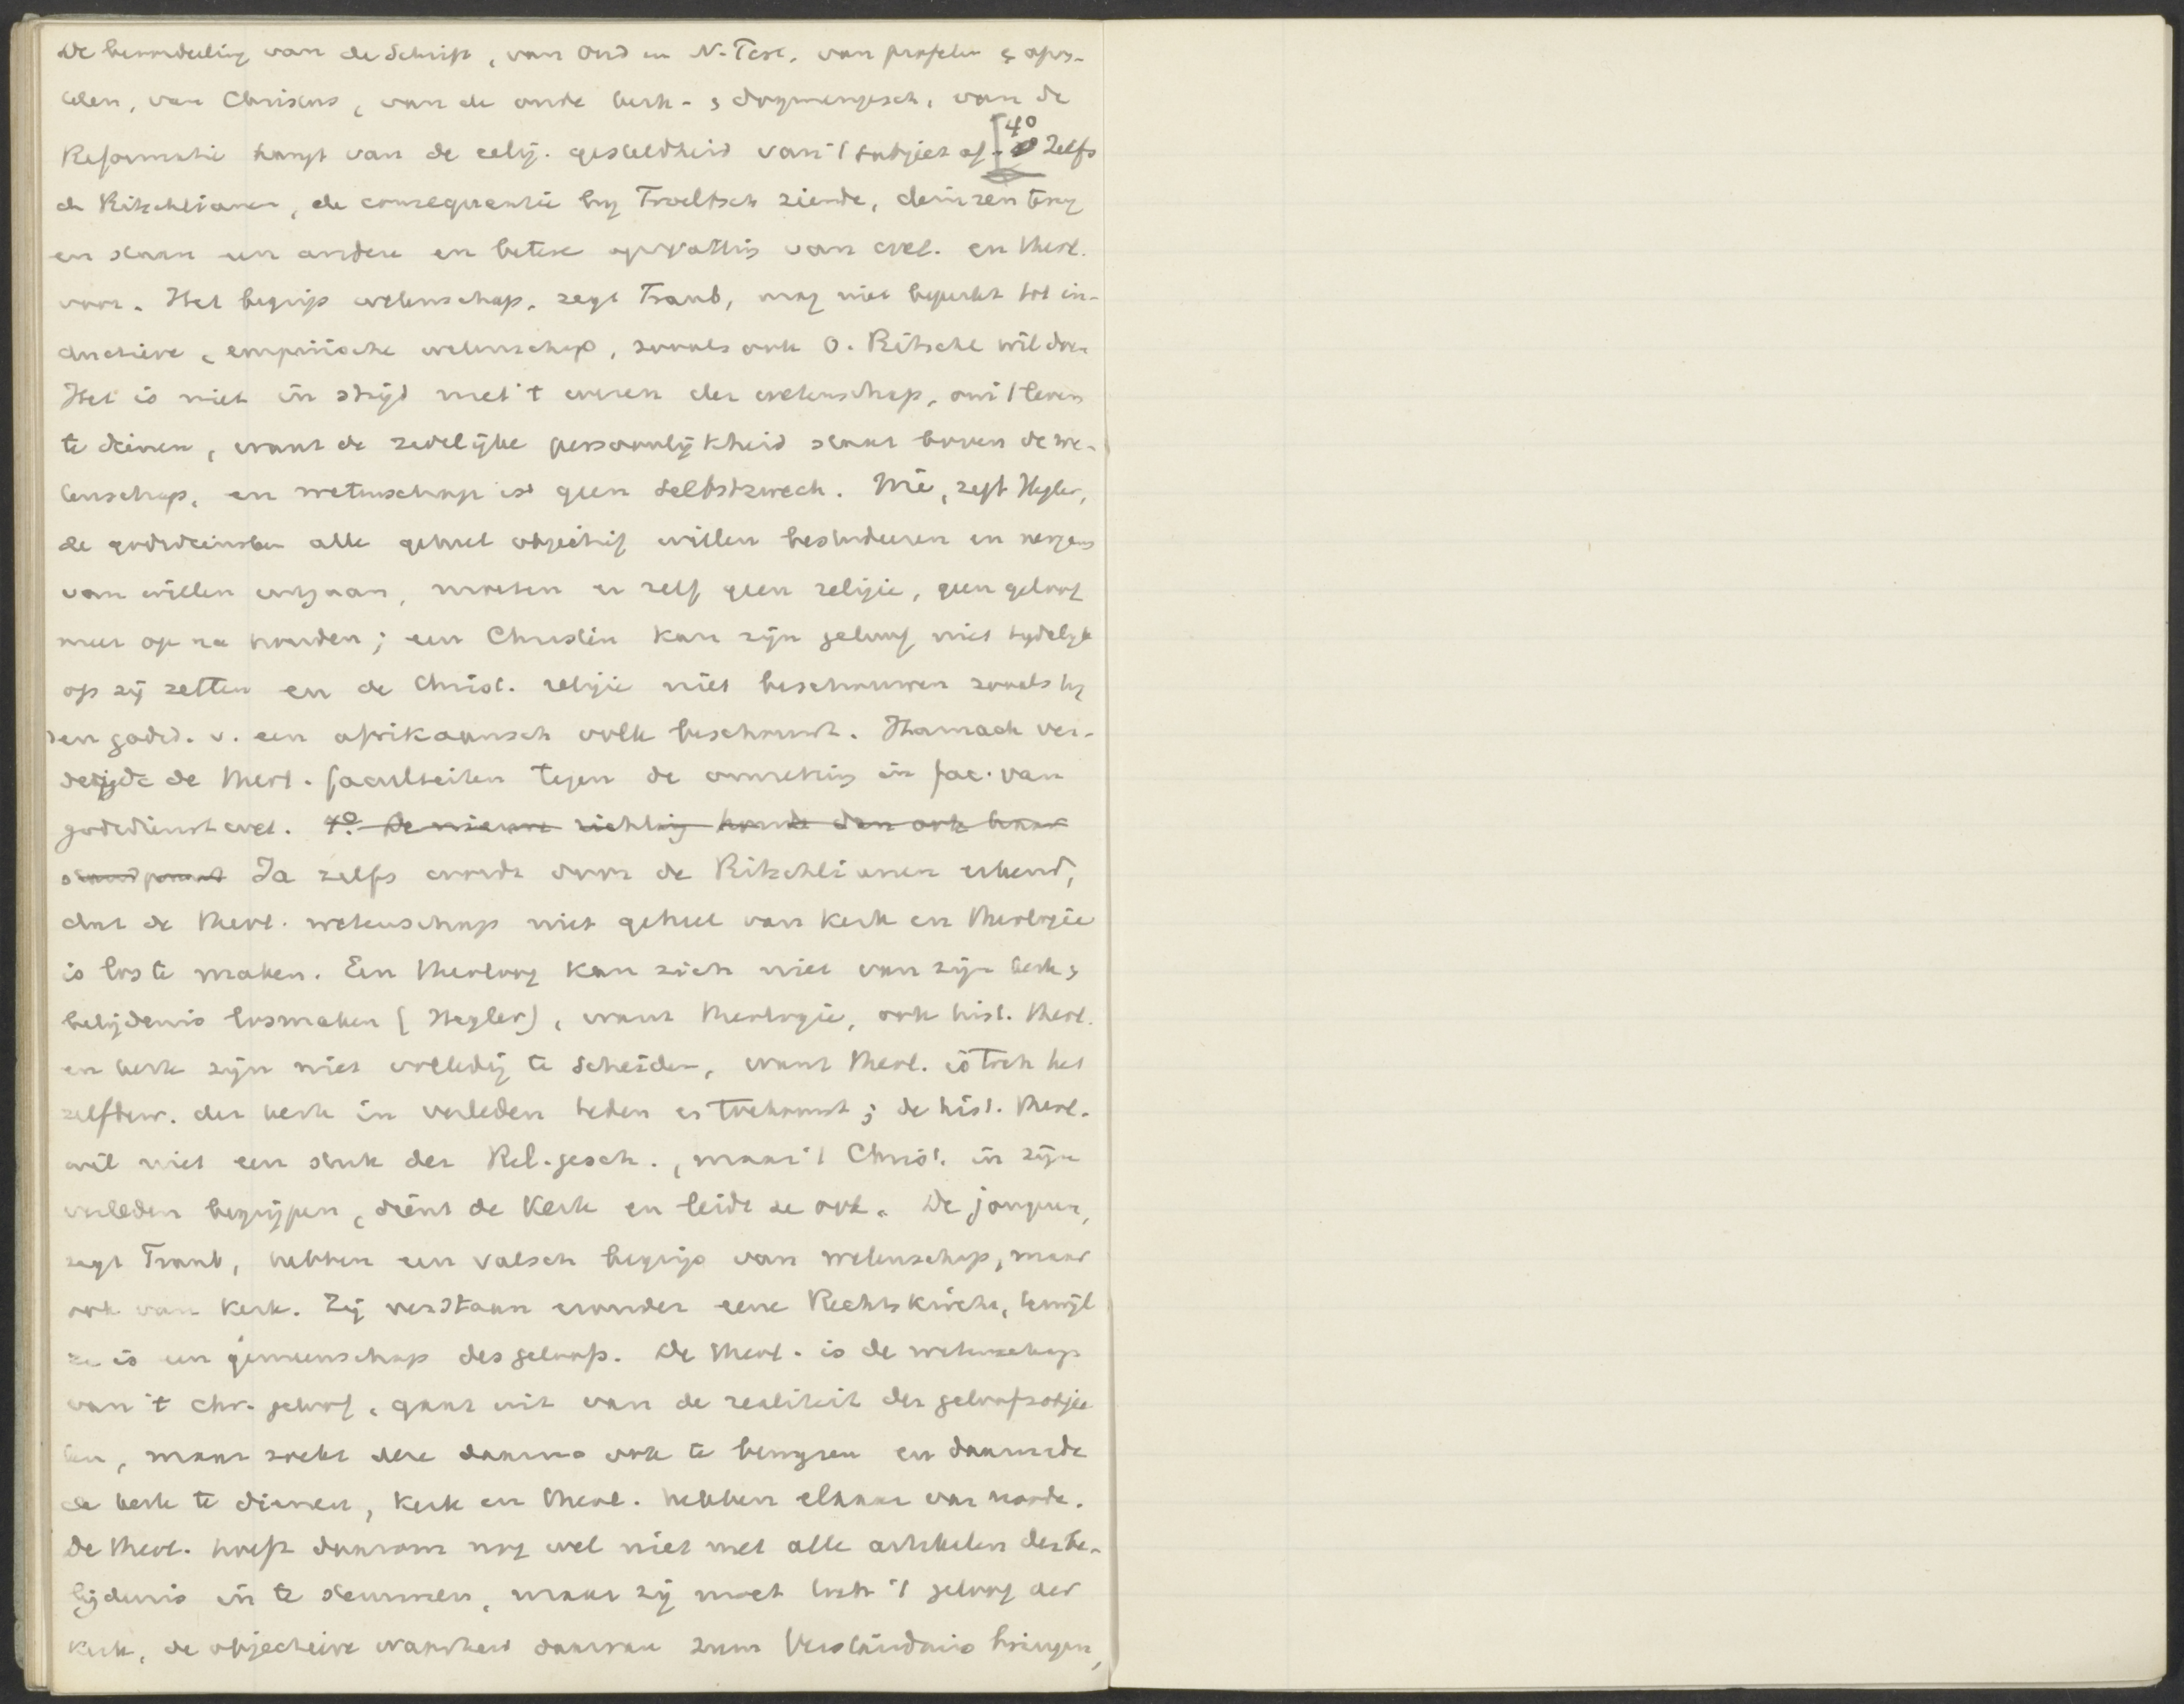 De beoordeeling van de Schrift, van Oud en N. Test. van profeten & apos-
telen, van Christus, van de oude kerk- & dogmengesch., van de
Reformatie hangt van de relig. gesteldheid van 't subject af. [4º Zelfs
de Ritschlianen, de consequentie by Troeltsch ziende, deinzen terug
en staan een andere en betere opvatting van wet. en theol.
voor. Het begrip wetenschap, zegt Traub, mag niet beperkt tot in-
ductieve, empirische wetenschap, zooals ook O. Ritschl wil doen
Het is niet in strijd met 't wezen der wetenschap, om 't leven
te dienen, want de zedelijke persoonlijkheid staat boven de we-
tenschap, en wetenschap is geen Selbstzweck. Wie, zegt Hegler,
de godsdiensten alle geheel objectief willen bestudeeren en nergens
van willen uitgaan, moeten er zelf geen religie, geen geloof
meer op na houden; een Christen kan zijn geloof niet tydelyk
op zij zetten en de Christ. religie niet beschouwen zooals hy
den godsd. v. een afrikaansch volk beschouwt. Harnack ver-
dedigde de theol. faculteiten tegen de omzetting in fac. van
godsdienstwet. 4º. De nieuwe richting houde dan ook haar
standpunt Ja zelfs wordt door de Ritschlianen erkend,
dat de theol. wetenschap niet geheel van kerk en theologie
is los te maken. Een theoloog kan zich niet van zijn kerk &
belijdenis losmaken (Hegler), want theologie, ook hist. theol.
en kerk zijn niet volledig te scheiden, want theol. is toch het
zelfbew. der kerk in verleden heden en toekomst; de hist. theol.
wil niet een stuk der Rel. gesch., maar 't Christ. in zijn
verleden begrijpen, dient de kerk en leidt ze ook. De jongeren,
zegt Traub, hebben een valsch begrip van wetenschap, maar
ook van kerk. Zij verstaan eronder eene Rechtskirche, terwijl
ze is een gemeenschap des geloofs. De theol. is de wetenschap
van 't chr. geloof, gaat uit van de realiteit der geloofsobjec
ten, maar zoekt deze daarna ook te en daarmede
de kerk te dienen, kerk en theol. hebben elkaar van noode.
De theol. hoeft daarom nog wel niet met alle artikelen der be-
lijdenis in te stemmen, maar zij moet toch 't geloof der
kerk, de objectieve waarheid daarvan zum Verständnis bringen,